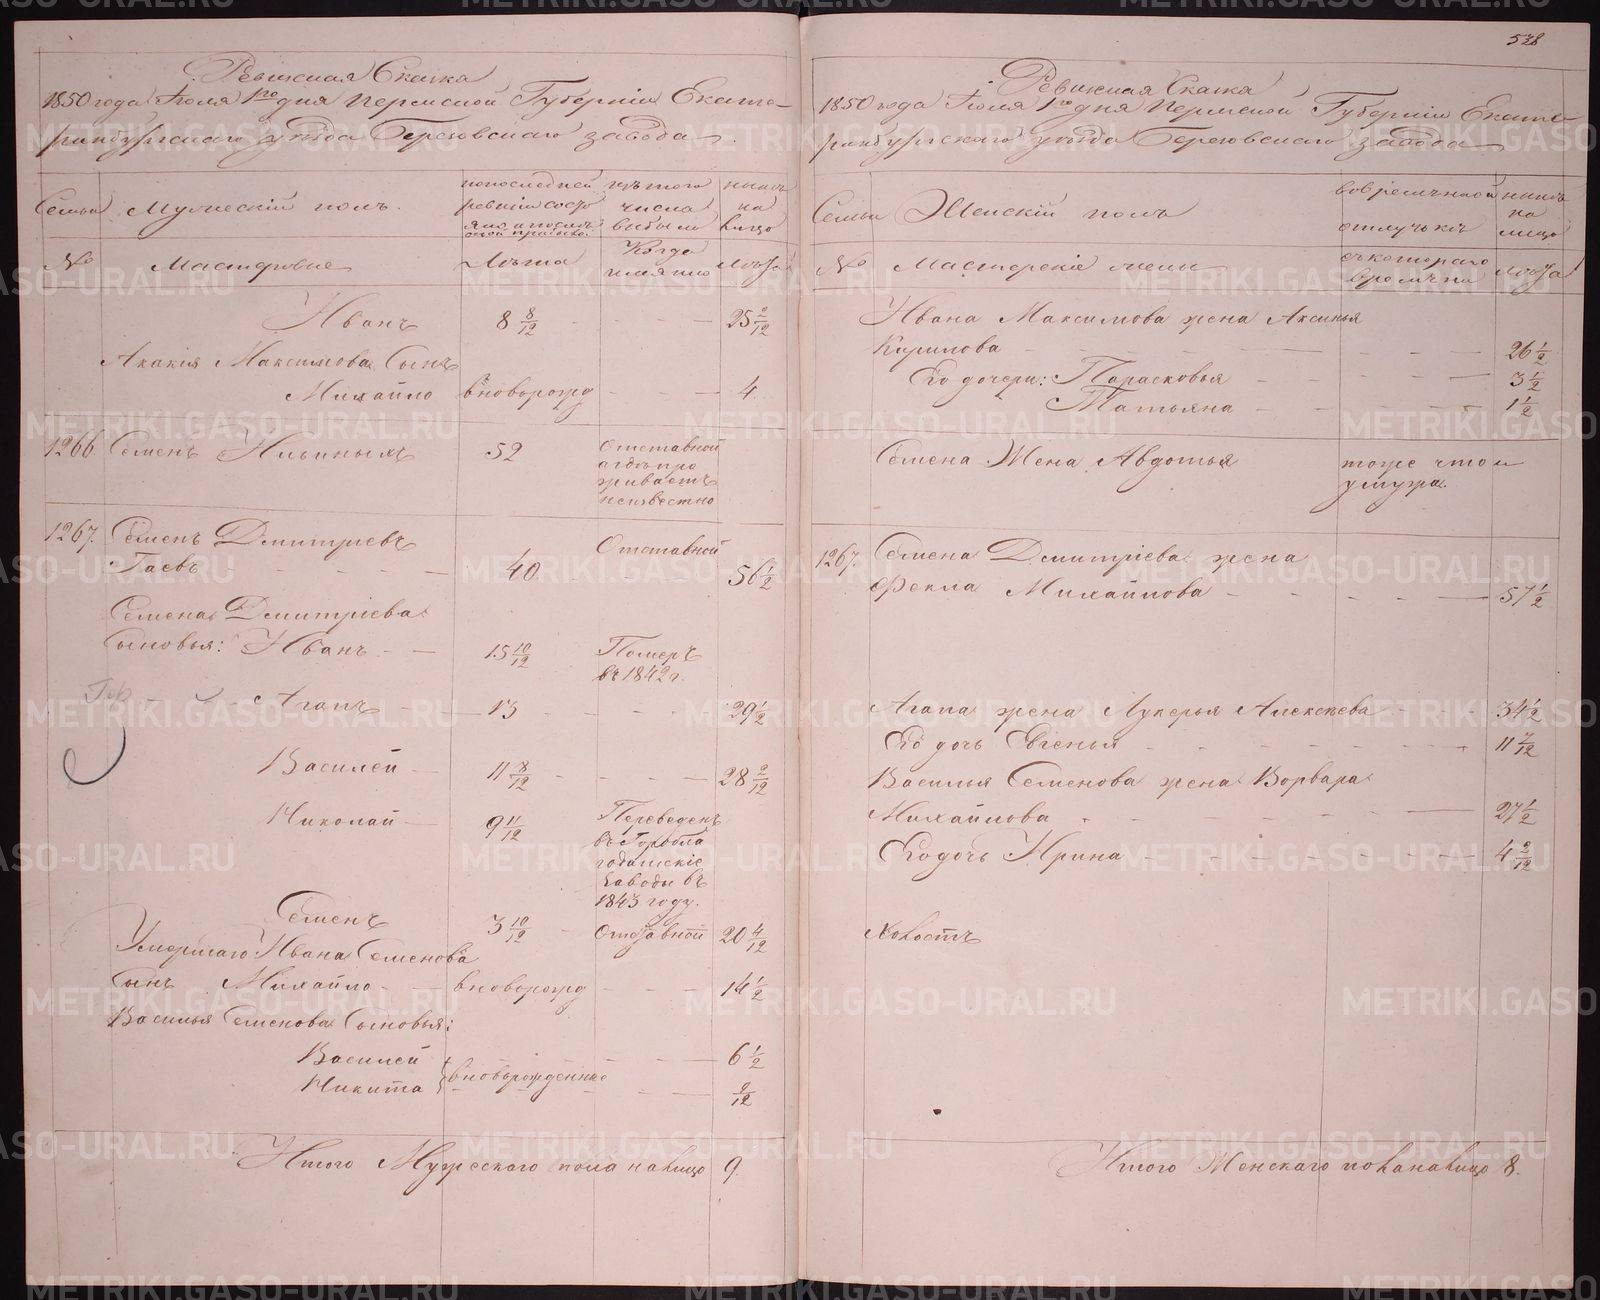 Ревизская Сказка
1850 года Июля 1го дня Пермской Губерніи Екате-
ринбургскаго уѣзда Березовскаго завода
Семьи
Мужескій полъ.
по последней
ревизіи состо
яло и послѣ
оной прибыло
изъ того
числа
выбыло
нынѣ
на
лицо
№
Мастеровые
Лѣта
Когда
именно
Лѣта
Иванъ 8 8/12 - - - 25 2/12
Акакія Максимова Сынъ
Михайло вноворожд - - - 4
1266. Семенъ Ильиныхъ 52
Отставной
а гдѣ про
живаетъ
неизвестно
1267. Семенъ Дмитріевъ
Гаевъ - - - 40 Отставной 56 1/2
Семена Дмитріева
Сыновья: Иванъ - - 15 10/12
Померъ
въ 1842 г.
Агапъ - 13 - - - 29 1/2
Василей - 11 8/12 - - - 28 2/12
Николай - 9 11/12
Переведенъ
въ Горобла
годатскіе
заводы въ
1843 году.
Семенъ 3 10/12 - Отставной 20 4/12
Умершаго Ивана Семенова
Сынъ Михайло - - вноворожд - - - 14 1/2
Василья Семенова Сыновья:
Василей } вноворожденные - - - 6 1/2
Никита } - - - 2/12
Итого Мужескаго пола на лицо 9.
528
Ревизская Сказка
1850 года Июля 1го дня Пермской Губерніи Екате-
ринбургскаго уѣзда Березовскаго завода
Семьи
Женскій полъ
во временной
отлучкѣ
нынѣ
на
лицо
№
Мастерскіе жены
съ котораго
времени
Лѣта
Ивана Максимова жена Аксинья
Кирилова - - - 26 1/2
Его дочери: Парасковья - - - 3 1/2
Татьяна - - - 1 1/2
Семена Жена Авдотья
тоже что и
у мужа.
1267. Семена Дмитріева жена
Фекла Михайлова - - - 57 1/2
Агапа жена Лукерья Алексѣева - - - 34 1/2
Его дочь Евгенья - - - 11 7/12
Василья Семенова жена Ворвара
Михайлова - - - 27 1/2
Его дочь Ирина - - - 4 2/12
Холостъ
Итого Женскаго пола на лицо 8.
METRIKI.GASO-URAL.RU